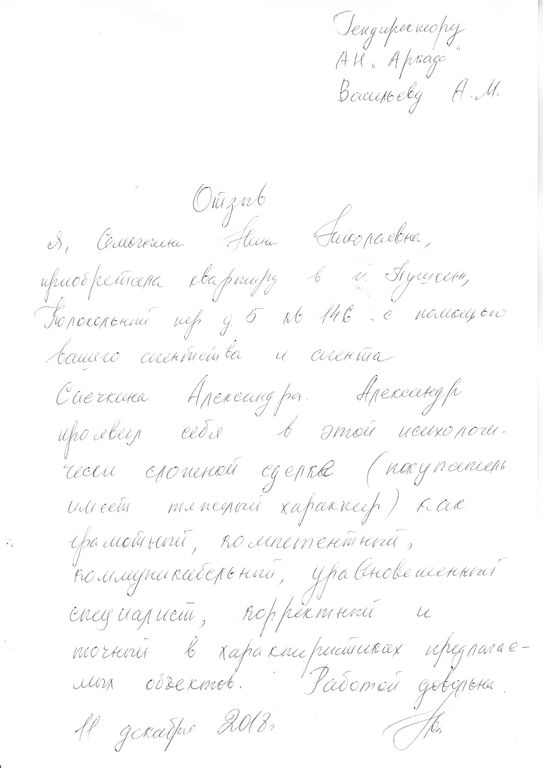 Гендиректору
АН „Аркада"
Васильеву А.М.
Отзыв
Я, Нина Николаевна,
приобретала квартиру в г. Пушкин,
Колокольный пер д 5 кв 146 с помощью
вашего агентства и агента
Спечкина Александра. Александр
проявил себя в этой психологи-
чески сложной сделке (покупатель
имеет тяжелый характер) как
грамотный, компетентный,
коммуникабельный, уравновешенный
специалист, корректный и
точный в характеристиках предлагае-
мых объектов. Работой довольна.
11 декабря 2018г